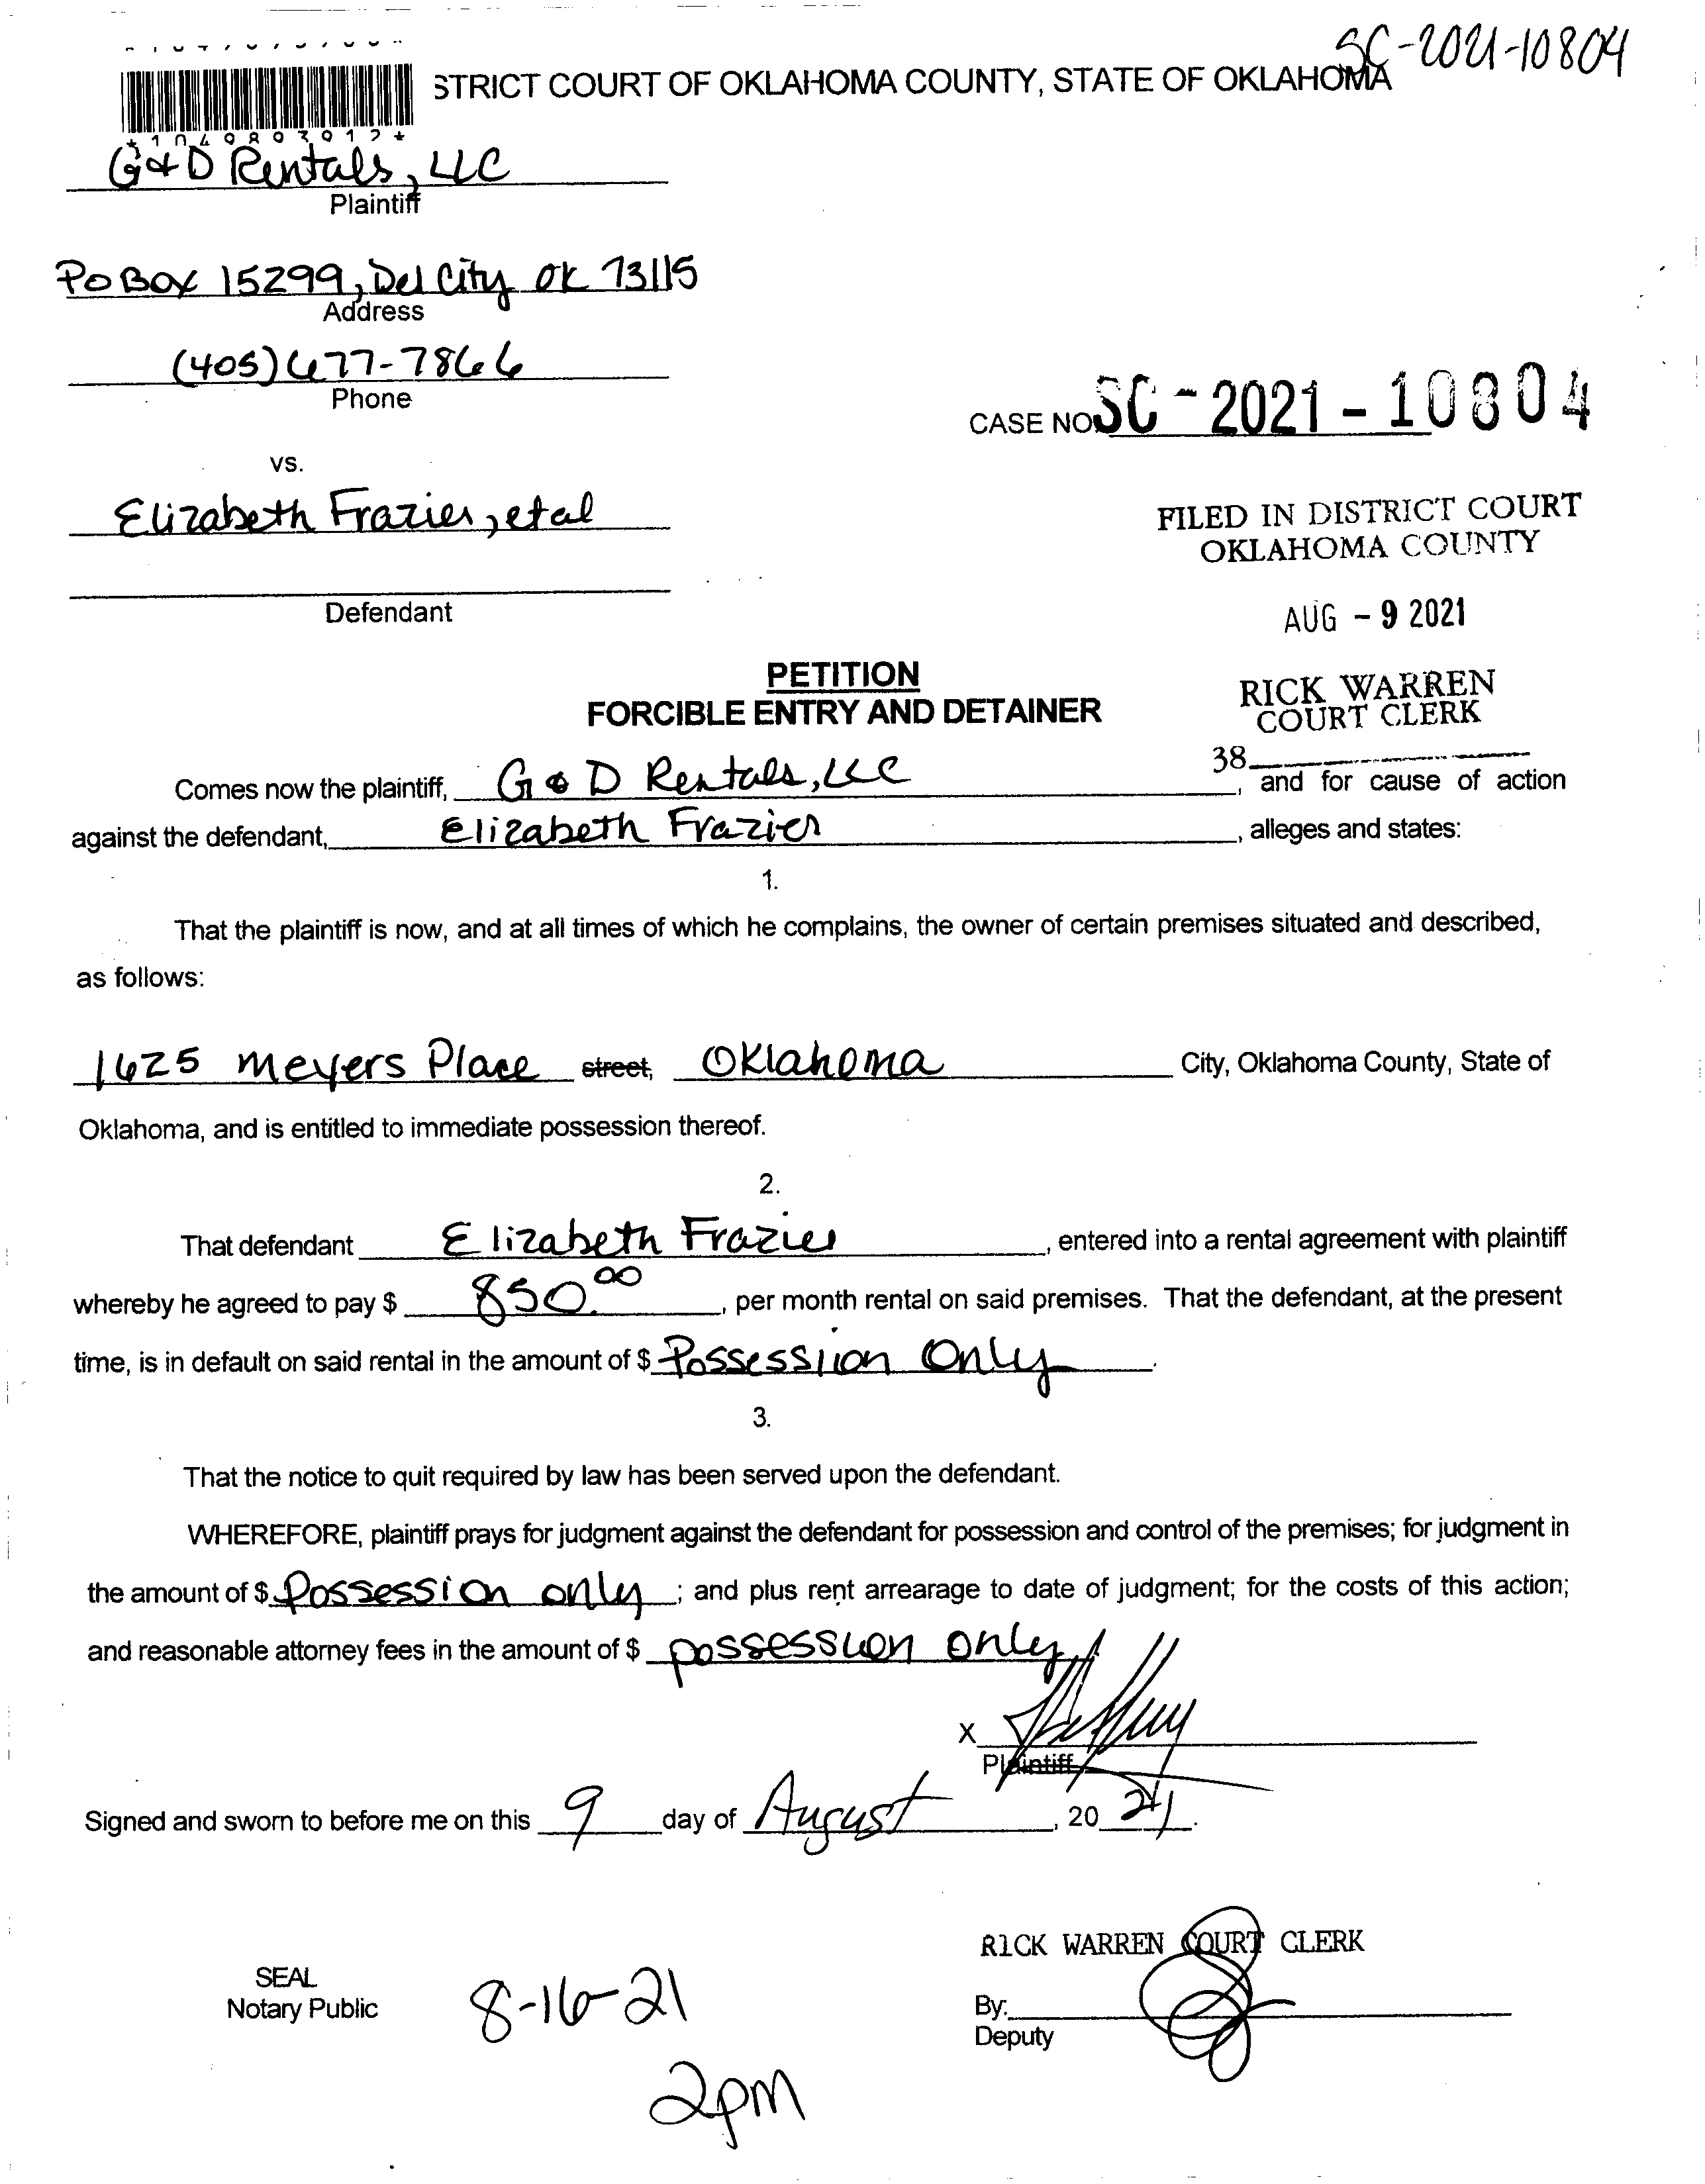 SC-2021-10804
STRICT COURT OF OKLAHOMA COUNTY, STATE OF OKLAHOMA
G&D Rentals, LLC
Plaintiff
PO Box 15299, Del City OK 73115
Address
(405) 677-7866
Phone
CASE NO. SC-2021-10804
vs.
Elizabeth Frazier, et al
FILED IN DISTRICT COURT
OKLAHOMA COUNTY
Defendant
AUG - 9 2021
PETITION
FORCIBLE ENTRY AND DETAINER
RICK WARREN
COURT CLERK
38
Comes now the plaintiff, G & D Rentals, LLC, and for cause of action
against the defendant, Elizabeth Frazier, alleges and states:
1.
That the plaintiff is now, and at all times of which he complains, the owner of certain premises situated and described,
as follows:
1625 Meyers Place street, Oklahoma City, Oklahoma County, State of
Oklahoma, and is entitled to immediate possession thereof.
2.
That defendant Elizabeth Frazier, entered into a rental agreement with plaintiff
whereby he agreed to pay $ 850.00, per month rental on said premises. That the defendant, at the present
time, is in default on said rental in the amount of $ Possession Only.
3.
That the notice to quit required by law has been served upon the defendant.
WHEREFORE, plaintiff prays for judgment against the defendant for possession and control of the premises; for judgment in
the amount of $ Possession only; and plus rent arrearage to date of judgment; for the costs of this action;
and reasonable attorney fees in the amount of $ possession only
X
Plaintiff
Signed and sworn to before me on this 9 day of August, 20 21.
RICK WARREN COURT CLERK
SEAL
Notary Public
8-16-21
By:
Deputy
2pm